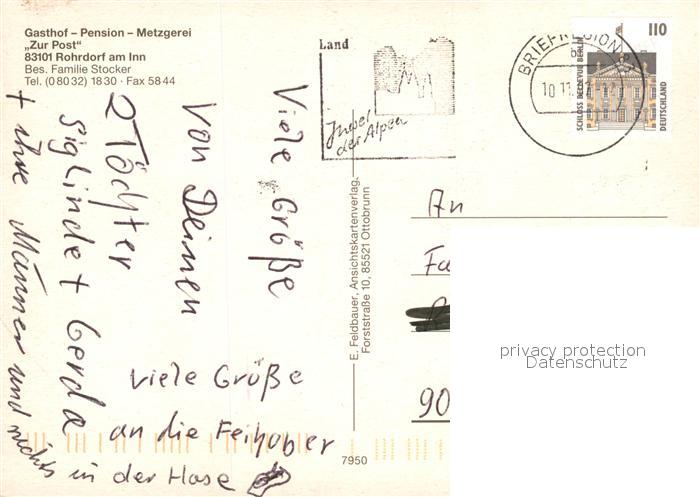 Gasthof – Pension – Metzgerei
„Zur Post"
83101 Rohrdorf am Inn
Bes. Familie Stocker
Tel. (0 80 32) 18 30 · Fax 58 44
Viele Grüße
von Deinen
2 Töchter
Siglinde + Gerda
+ ihre Männer und nichts
in der Hose
viele Grüße
an die Feihaber
E. Feldbauer, Ansichtskartenverlag,
Forststraße 10, 85521 Ottobrunn
7950
Land
Juwel
der Alpen
BRIEFREGION
10.11.
110
SCHLOSS BELLEVUE BERLIN
DEUTSCHLAND
An
Fa
90
privacy protection
Datenschutz